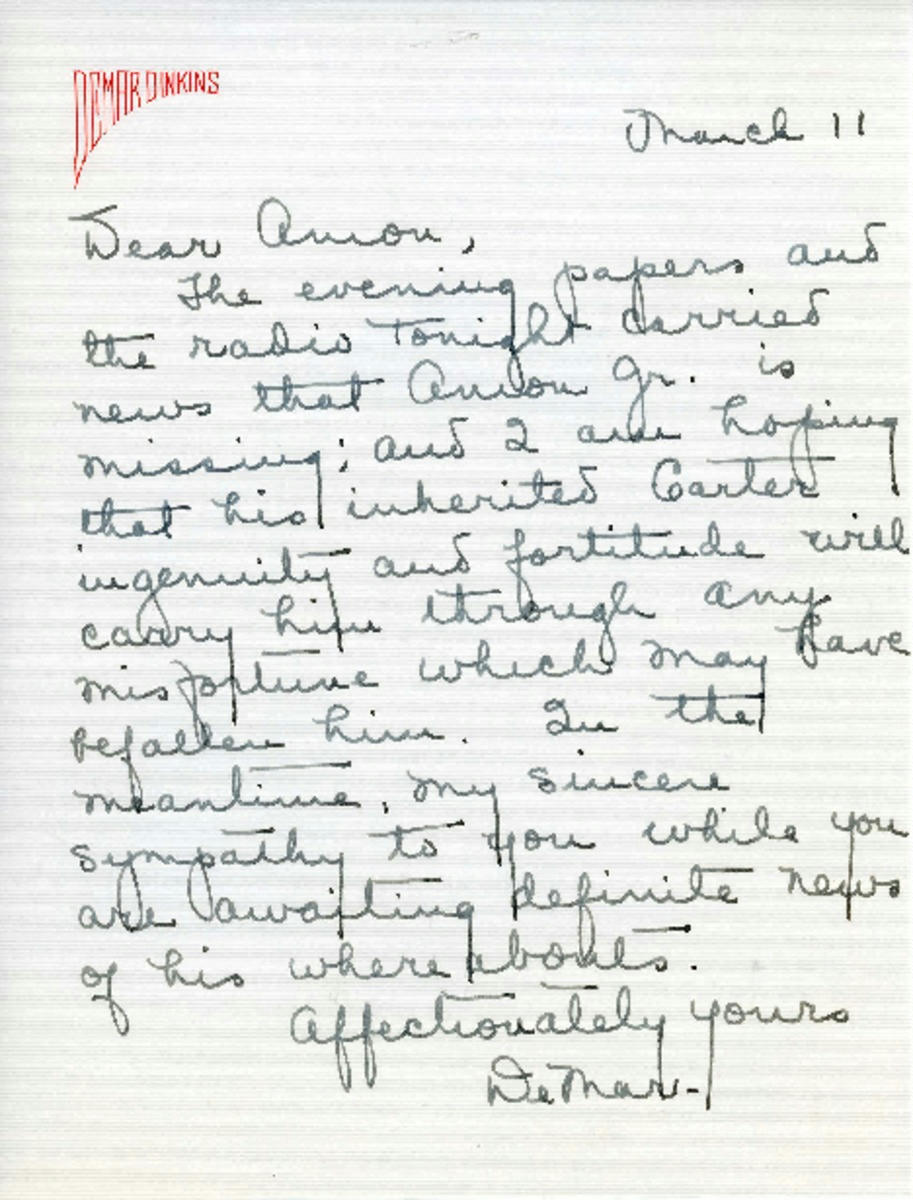 DEMAR DINKINS
March 11
Dear Amon,
The evening papers and
the radio tonight carried
news that Amon Jr. is
missing; and I am hoping
that his inherited Carter
ingenuity and fortitude will
carry him through any
misfortune which may have
befallen him. In the
meantime, my sincere
sympathy to you while you
are awaiting definite news
of his whereabouts.
Affectionately yours
DeMar-